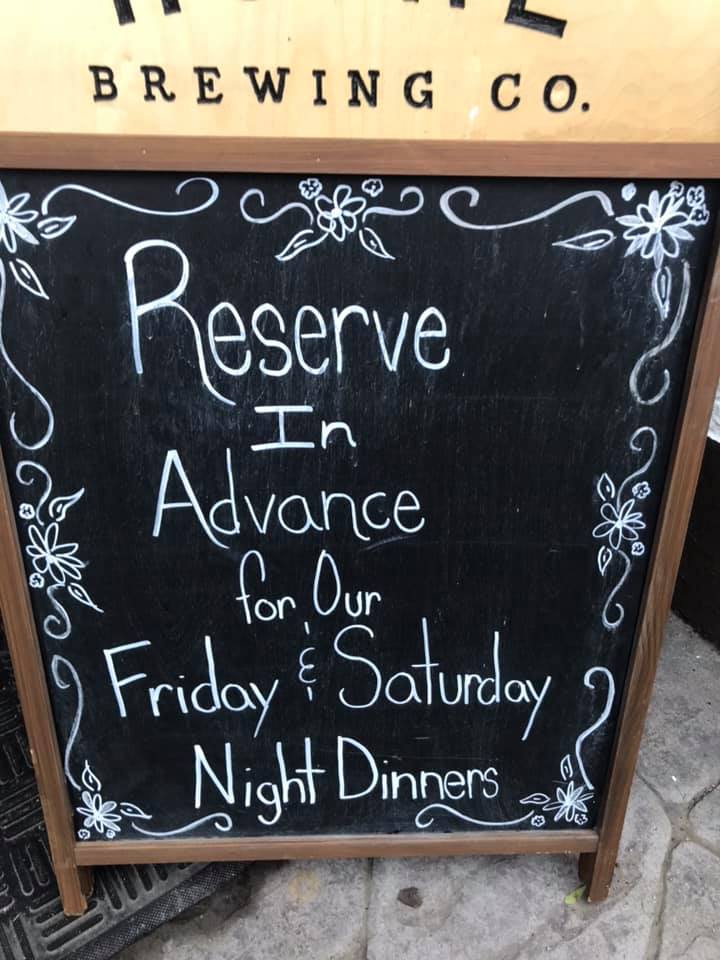 BREWING CO.
Reserve
In
Advance
for Our
Friday & Saturday
Night Dinners